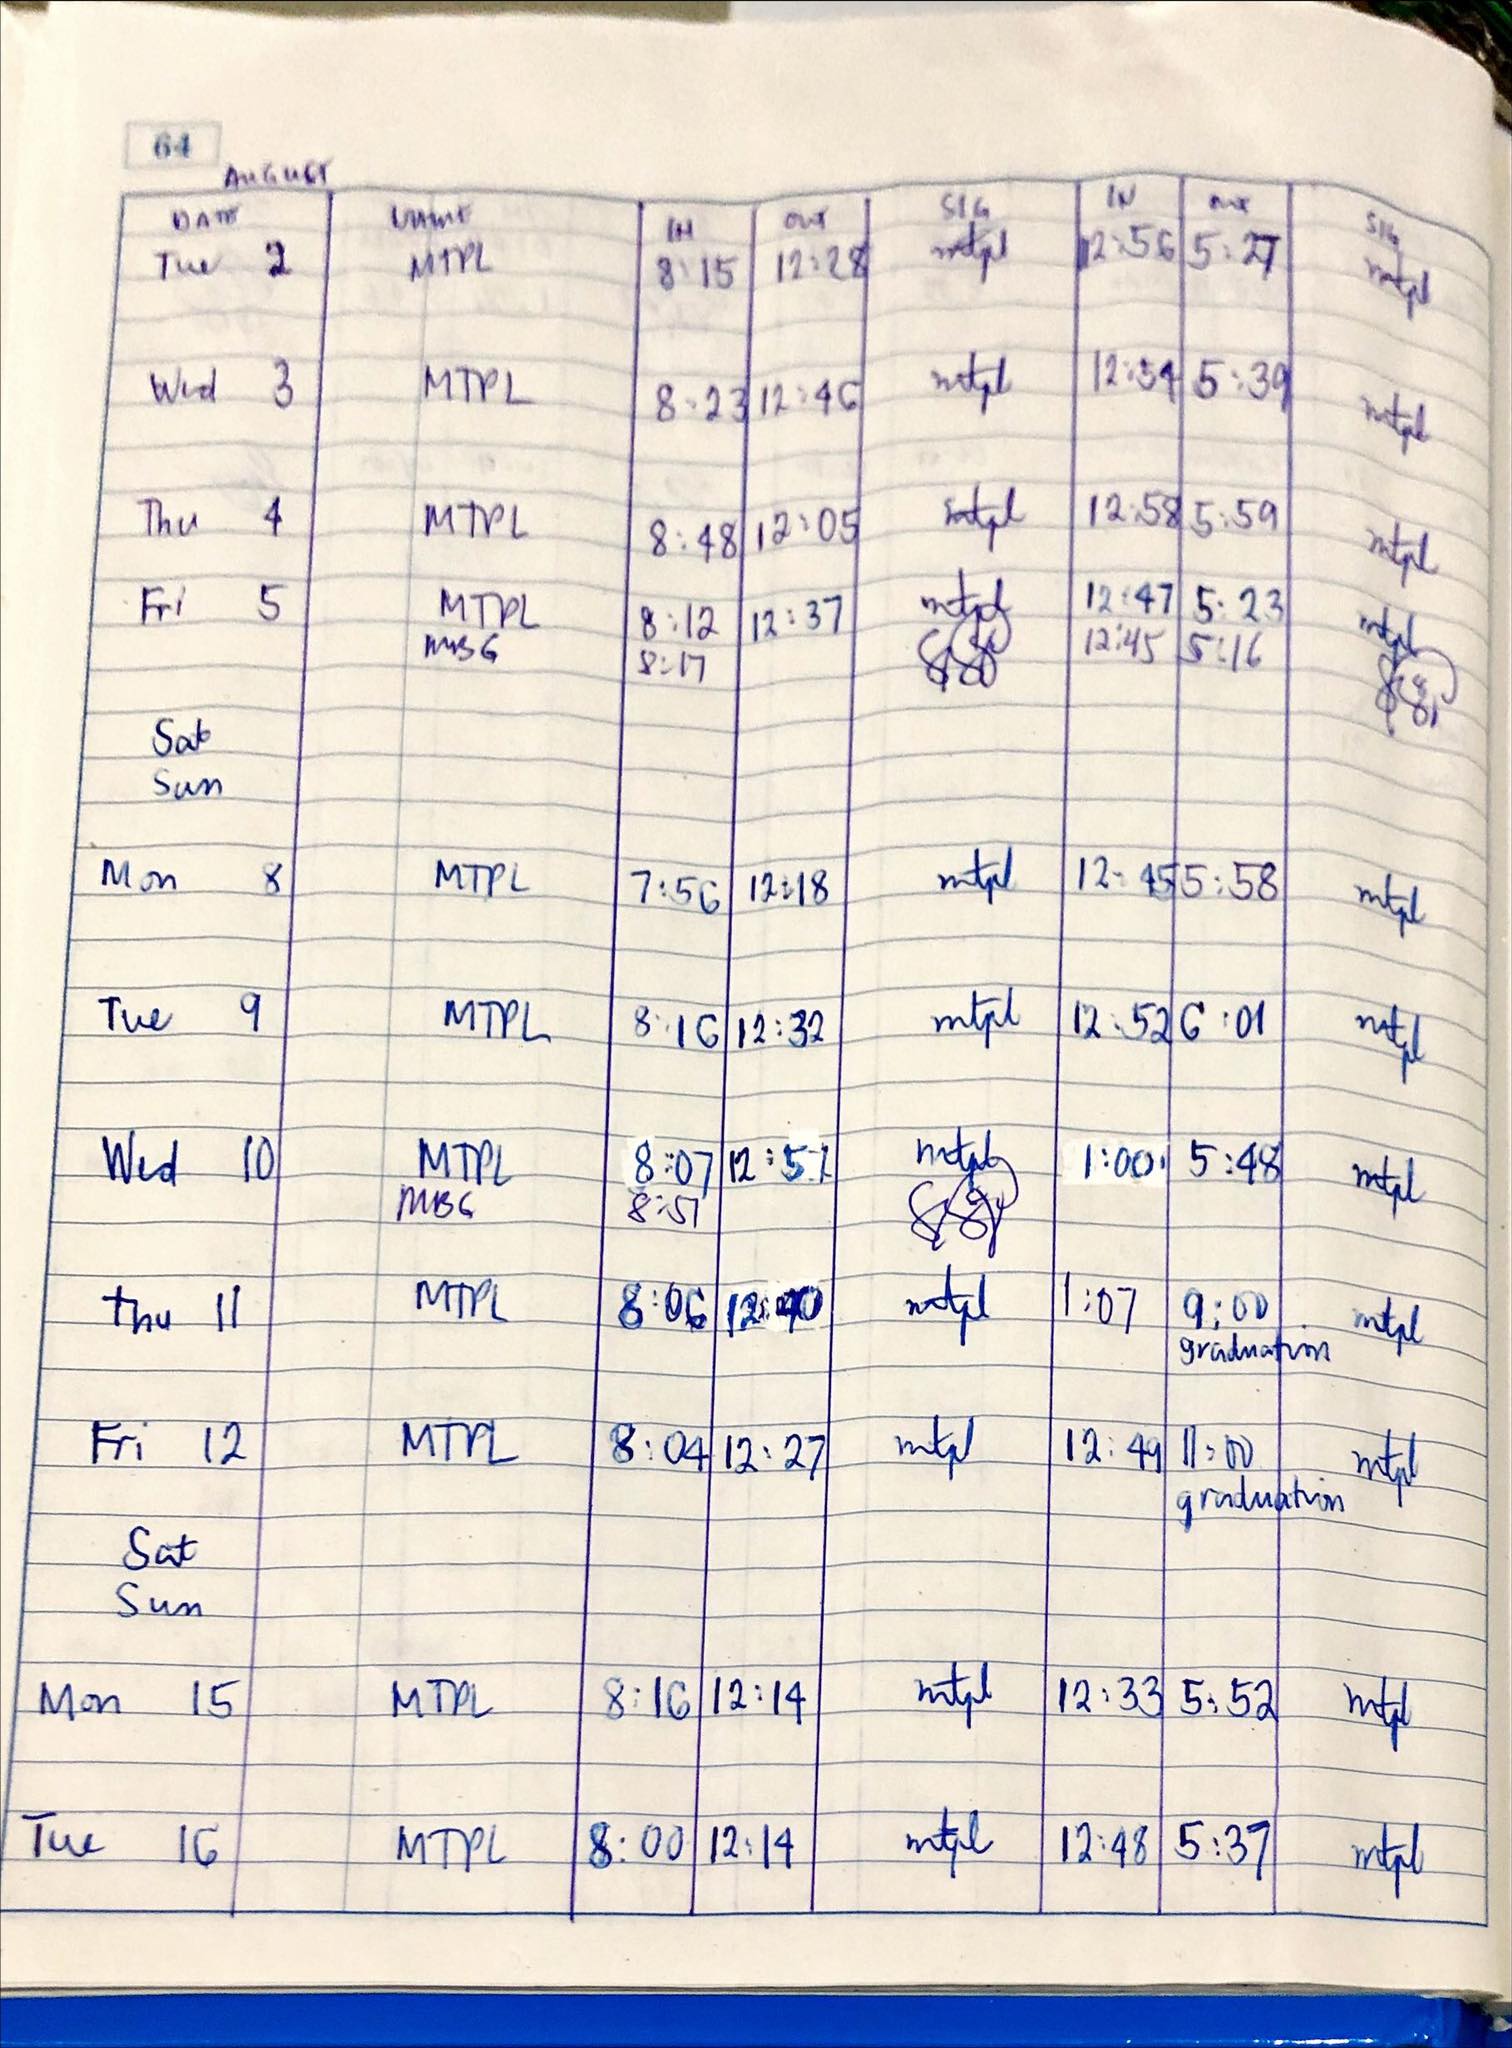 64
AUGUST
DATE NAME IN OUT SIG IN OUT SIG
Tue 2 MTPL 8:15 12:28 mtpl 12:56 5:27 mtpl
Wed 3 MTPL 8:23 12:46 mtpl 12:54 5:39 mtpl
Thu 4 MTPL 8:48 12:05 mtpl 12:58 5:59 mtpl
Fri 5 MTPL 8:12 12:37 mtpl 12:47 5:23 mtpl
MBG 8:17 12:45 5:16
Sat
Sun
Mon 8 MTPL 7:56 12:18 mtpl 12:45 5:58 mtpl
Tue 9 MTPL 8:16 12:32 mtpl 12:52 6:01 mtpl
Wed 10 MTPL 8:07 12:51 mtpl 1:00 5:48 mtpl
MBG 8:51
Thu 11 MTPL 8:06 12:40 mtpl 1:07 9:00 mtpl
graduation
Fri 12 MTPL 8:04 12:27 mtpl 12:49 11:00 mtpl
graduation
Sat
Sun
Mon 15 MTPL 8:16 12:14 mtpl 12:33 5:52 mtpl
Tue 16 MTPL 8:00 12:14 mtpl 12:48 5:37 mtpl